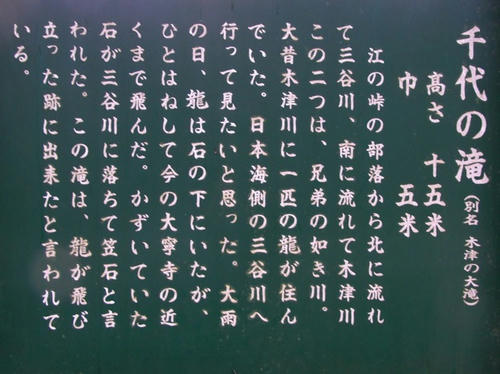 千代の滝(別名 木津の大滝)
高さ 十五米
巾 五米
江の峠の部落から北に流れ
て三谷川、南に流れて木津川
この二つは、兄弟の如き川。
大昔木津川に一匹の龍が住ん
でいた。 日本海側の三谷川へ
行って見たいと思った。大雨
の日、龍は石の下にいたが、
ひとはねして今の大寧寺の近
くまで飛んだ。かずいていた
石が三谷川に落ちて笠石と言
われた。この滝は、龍が飛び
立った跡に出来たと言われて
いる。